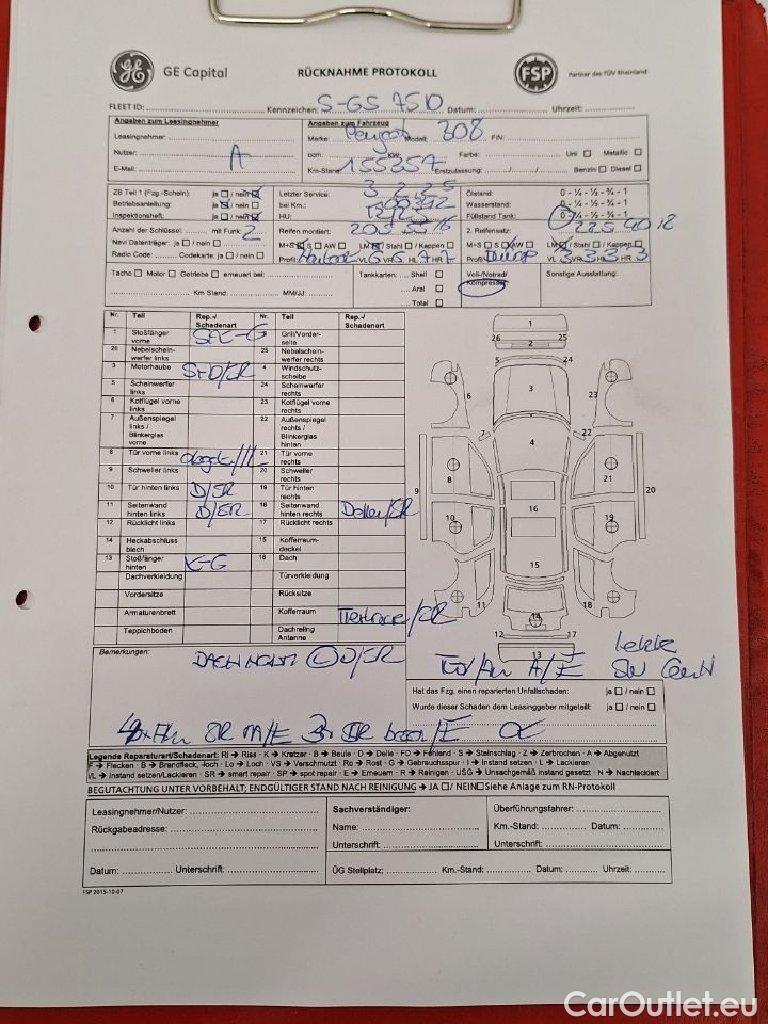 GE Capital RÜCKNAHME PROTOKOLL FSP Partner des TÜV Rheinland
FLEET ID: Kennzeichen: S-GS 7510 Datum: Uhrzeit:
Angaben zum Leasingnehmer Angaben zum Fahrzeug
Leasingnehmer: Marke: Peugeot Modell: 308 FIN:
Nutzer: A ccm: KW: Farbe: Uni Metallic
E-Mail: Km-Stand: 155257 Erstzulassung: Benzin Diesel
ZB Teil 1 (Fzg.-Schein): ja / nein Letzter Service: Ölstand: 0 - ¼ - ½ - ¾ - 1
Betriebsanleitung: ja / nein bei Km.: Wasserstand: 0 - ¼ - ½ - ¾ - 1
Inspektionsheft: ja / nein HU: Füllstand Tank: 0 - ¼ - ½ - ¾ - 1
Anzahl der Schlüssel: mit Funk: 2 Reifen montiert: 205 55 16 2. Reifensatz:
Navi Datenträger: ja / nein M+S S AW LM / Stahl / Kappen M+S S AW LM / Stahl / Kappen
Radio Code: Codekarte: ja / nein Profil VL VR HL 7 HR 7 Profil VL 3 VR 3 HL 3 HR 3
Tacho Motor Getriebe erneuert bei: Tankkarten: Shell Voll-/Notrad/ Sonstige Ausstattung:
Km Stand: MM/JJ: Aral Kompressor
Total
Nr. Teil Rep.-/ Schadenart Nr. Teil Rep.-/ Schadenart
1 Stoßfänger vorne Grill/Vorder-seite
26 Nebelschein-werfer links 25 Nebelschein-werfer rechts
3 Motorhaube S+D/SR 4 Windschutz-scheibe
5 Scheinwerfer links 24 Scheinwerfer rechts
6 Kotflügel vorne links 23 Kotflügel vorne rechts
7 Außenspiegel links / Blinkerglas vorne 22 Außenspiegel rechts / Blinkerglas hinten
8 Tür vorne links 21 Tür vorne rechts
9 Schweller links 20 Schweller rechts
10 Tür hinten links D/SR 19 Tür hinten rechts
11 Seitenwand hinten links D/SR 18 Seitenwand hinten rechts Delle/SR
12 Rücklicht links 17 Rücklicht rechts
14 Heckabschluss blech 15 Kofferraum-deckel
13 Stoßfänger hinten K-G 16 Dach
Dachverkleidung Türverkleidung
Vordersitze Rücksitze
Armaturenbrett Kofferraum
Teppichboden Dachreling Antenne
1
26 25
2
5 24
3
6 23
7 22
4
8 21
9 20
16
10 19
15
11 18
14
12 17
13
Bemerkungen:
Hat das Fzg. einen reparierten Unfallschaden: ja / nein
Wurde dieser Schaden dem Leasinggeber mitgeteilt: ja / nein
Legende Reparaturart/Schadenart: RI → Riss - K → Kratzer - B → Beule - D → Delle - FD → Fehlend - S → Steinschlag - Z → Zerbrochen - A → Abgenutzt
F → Flecken - B → Brandfleck, -loch - Lo → Loch - VS → Verschmutzt - Ro → Rost - G → Gebrauchsspur - I → Instand setzen - L → Lackieren
I/L → Instand setzen/Lackieren - SR → smart repair - SP → spot repair - E → Erneuern - R → Reinigen - USG → Unsachgemäß instand gesetzt - N → Nachlackiert
BEGUTACHTUNG UNTER VORBEHALT; ENDGÜLTIGER STAND NACH REINIGUNG → JA / NEIN Siehe Anlage zum RN-Protokoll
Leasingnehmer/Nutzer: Sachverständiger: Überführungsfahrer:
Rückgabeadresse: Name: Km.-Stand: Datum:
Unterschrift: Unterschrift:
Datum: Unterschrift: ÜG Stellplatz: Km.-Stand: Datum: Uhrzeit:
FSP 2015-10-07
CarOutlet.eu